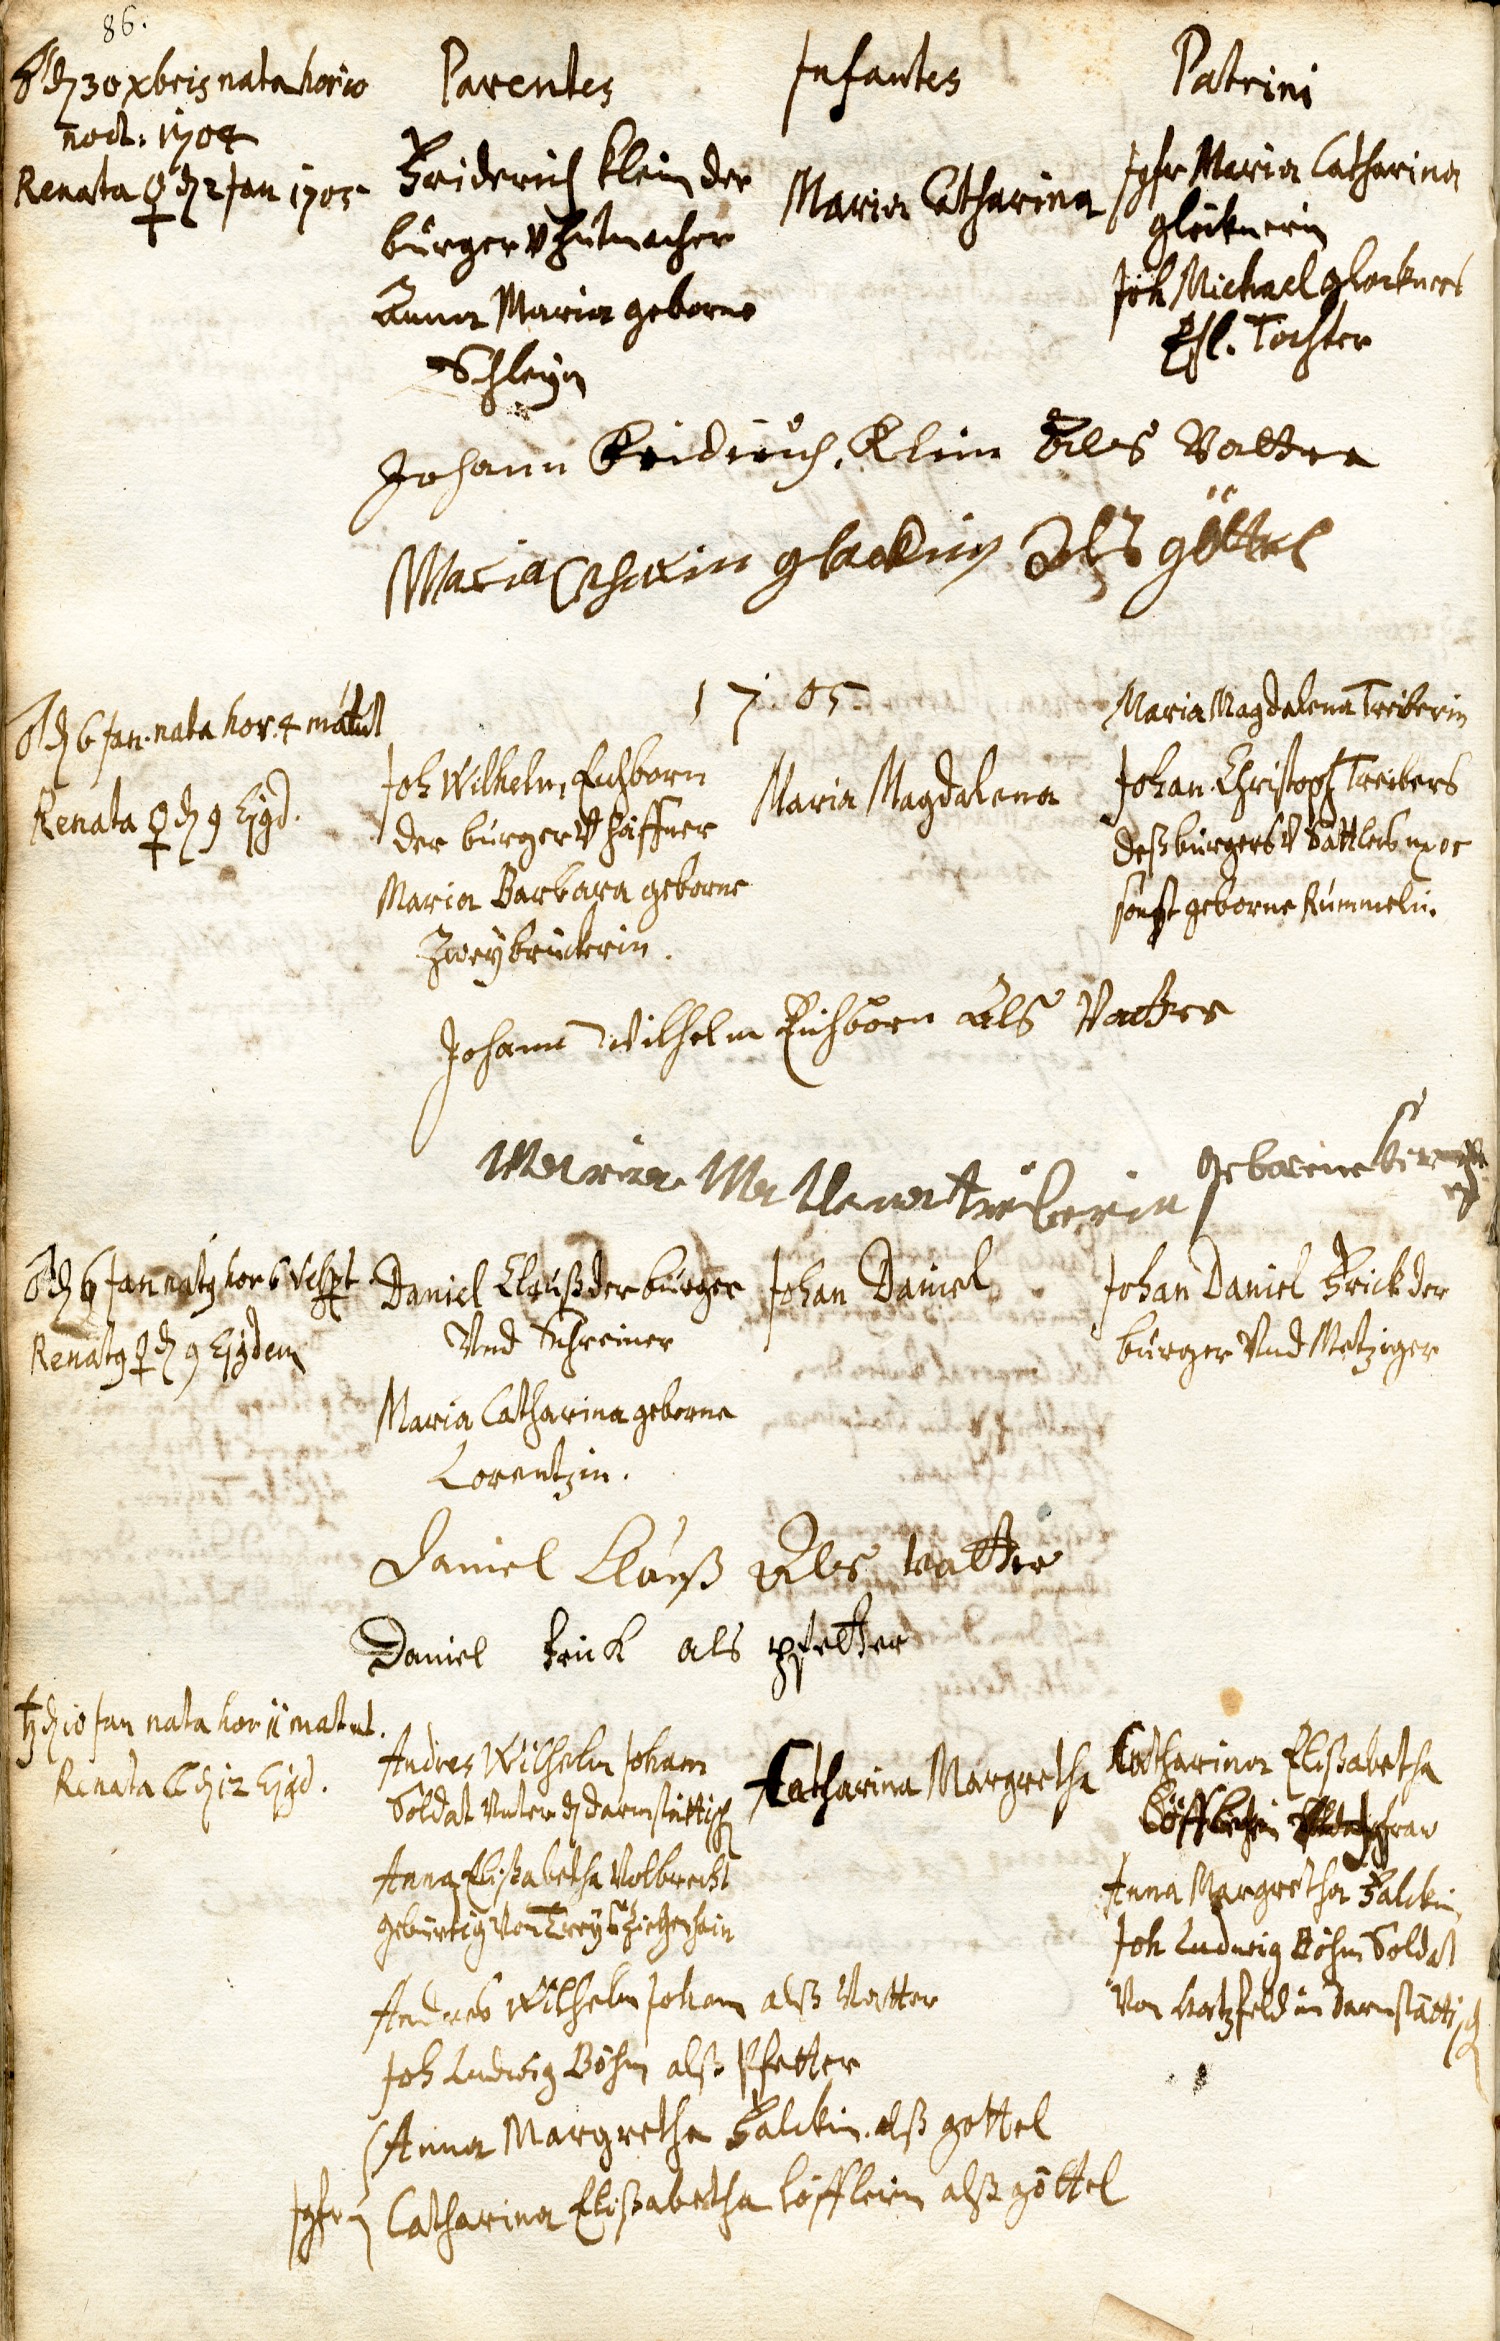 86.
♂ d 30 xbris nata hor 10
noct: 1704
Renata ♀ d 2 Jan 1705
Parentes
Friderich Klein der
bürger v hutmacher
Anna Maria geborne
Schleyin
Infantes
Maria Catharina
Patrini
Jgfr Maria Catharina
glöcknerin
Joh Michael glockners
Ehl. Tochter
Johann Fridrich Klein als Vatter
Maria Catharin glockin als göttel
1705
♂ d 6 Jan. nata hor. 4 matut
Renata ♀ d 9 Ejusd.
Joh Wilhelm Eichborn
der bürger v häffner
Maria Barbara geborne
Zweybrückerin.
Maria Magdalena
Maria Magdalena Treiberin
Johan Christoph Treibers
deß bürgers v Sattlers uxor
sonst geborne Kümmelin.
Johann Wilhelm Eichborn als Vatter
Maria Madlena Treiberin geborine
♂ d 6 Jan natus hor 6 vespt
Renatus ♀ d 9 Ejusdem
Daniel Clauß der bürger
Und Schreiner
Maria Catharina geborne
Lorentzin.
Johan Daniel
Johan Daniel Frick der
bürger Und Metziger
Daniel Clauß als vatter
Daniel Frick als pfetter
♄ d 10 Jan nata hor 11 matut.
Renata ☾ d 12 Ejusd.
Andres Wilhelm Joham
Soldat Unter d darmstättisch
Anna Elisabetha Volbrecht
gebürtig Von Treyß Ziegenhain
Catharina Margretha
Catharina Elißabetha
Löfflerin
Anna Margretha Falckin
Joh Ludwig Böhm Soldat
Von hatzfeld im darmstättisch
Andreß Wilhelm Joham alß Vatter
Joh Ludwig Böhm alß Pfetter
Anna Margretha Falckin alß gottel
Jgfr Catharina Elißabetha Löfflerin alß göttel